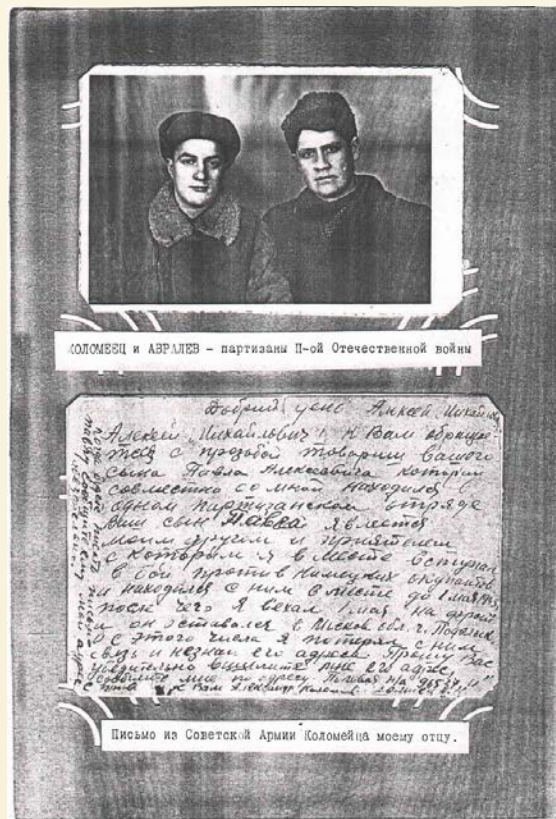 КОЛОМЕЕЦ и АВРАЛЕВ - партизаны П-ой Отечественной войны
Добрий день Алксей Михайлович
Алексей Михайлович к Вам обращае-
тся с прозбой товарищ вашого
сына Павла Алексеевича которий
совместно со мной находился в
одном партизанском отряде
Ваш сын Павел является
моим другом и приятелем
с которым я в месте вступал
в бой против Немецких окупантов
и находился с ним в месте до 1 мая
после чего я вехал 1 мая на фронт
и он оставался в Москов обл. г. Подольск
с этого числа я потерял с ним
связь и незнаю его адреса Прошу Вас
убедительно вышлите мне его адрес
мне по адресу Полевая
к Вам Александр
Письмо из Советской Армии Коломейца моему отцу.